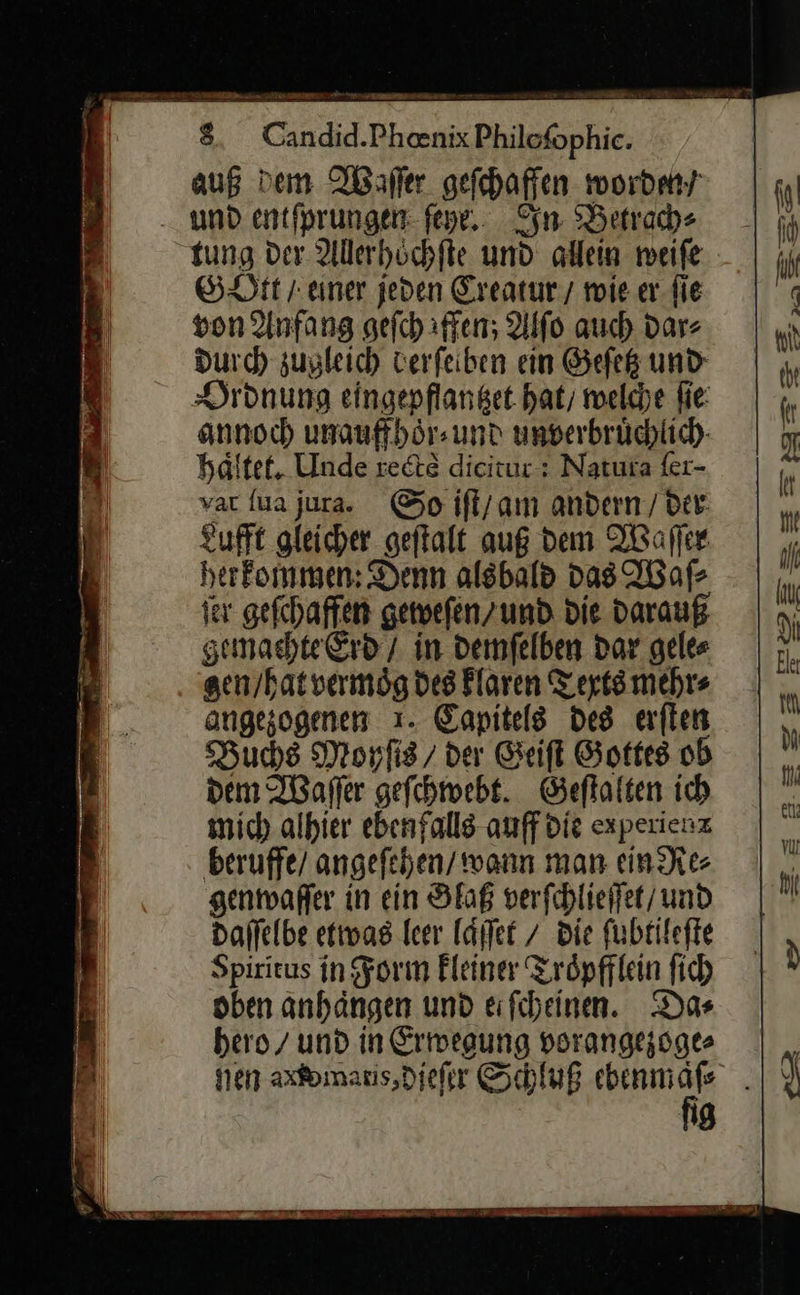 8 Candid. Phœnix Philoſophic.
auß dem Waſſer geſchaffen worden/
und entſprungen ſeye. In Betrach⸗
tung der Allerhöchſte und allein weiſe
GOtt / einer jeden Creatur / wie er ſie
von Anfang geſchaffen; Alſo auch dar⸗
durch zugleich derſelben ein Geſetz und
Ordnung eingepflantzet hat / welche ſie
annoch unauffhör⸗ und unverbrüchlich
hältet. Unde rectè dicitur : Natura ſer-
vat ſua jura. So iſt / am andern / der
Lufft gleicher geſtalt auß dem Waſſer
herkommen: Denn alsbald das Waſ⸗
ſer geſchaffen geweſen / und die darauß
gemachte Erd / in demſelben dar gele⸗
gen / hat vermög des klaren Texts mehr⸗
angezogenen 1. Capitels des erſten
Buchs Moyſis / der Geiſt Gottes ob
dem Waſſer geſchwebt. Geſtalten ich
mich alhier ebenfalls auff die experienz
beruffe / angeſehen / wann man ein Re⸗
genwaſſer in ein Glaß verſchlieſſet / und
daſſelbe etwas leer läſſet / die ſubtileſte
Spiritus in Form kleiner Tröpfflein ſich
oben anhängen und erſcheinen. Da⸗
hero / und in Erwegung vorangezoge⸗
nen axiomatis, dieſer Schluß ebenmäſ⸗
ſig